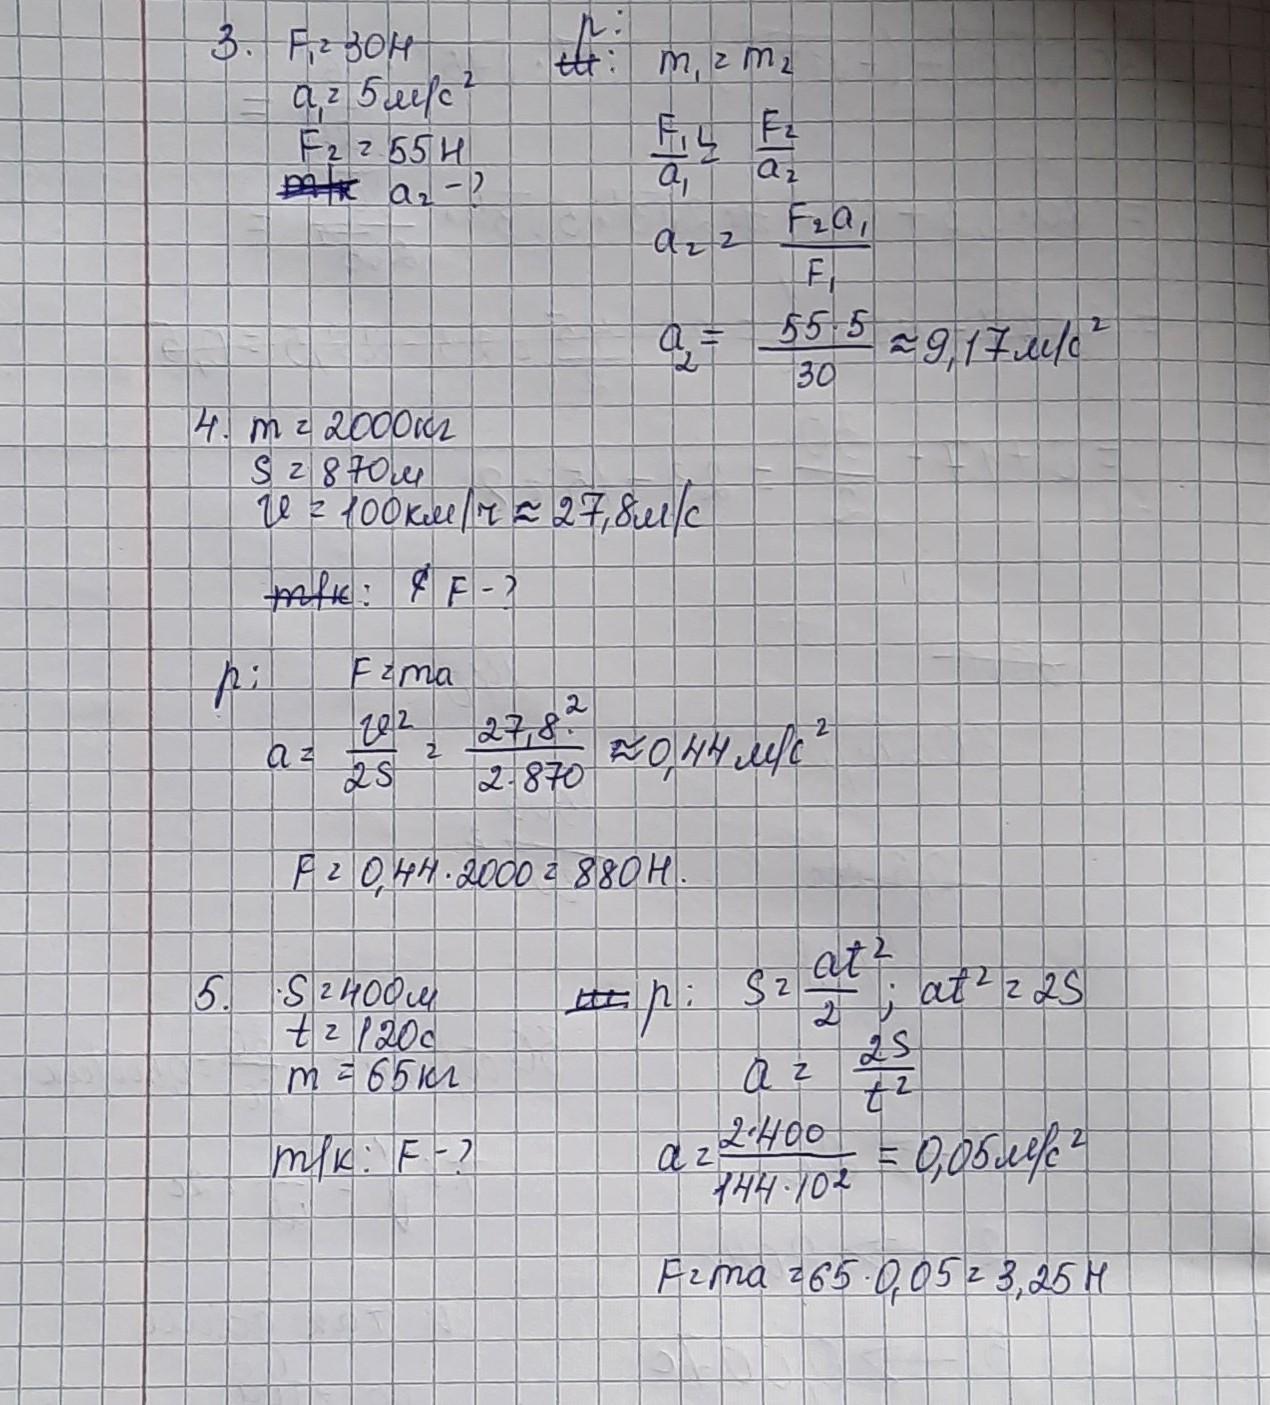 3. F₁ = 30Н
a₁ = 5м/с²
F₂ = 55Н
a₂ - ?
р:
m₁ = m₂
F₁/a₁ = F₂/a₂
a₂ = F₂a₁/F₁
a₂ = 55·5/30 ≈ 9,17м/с²
4. m = 2000кг
S = 870м
v = 100км/ч ≈ 27,8м/с
т/к: F - ?
р: F = ma
a = v²/2S = 27,8²/2·870 ≈ 0,44м/с²
F = 0,44·2000 = 880Н.
5. S = 400м
t = 120с
m = 65кг
т/к: F - ?
р: S = at²/2 ; at² = 2S
a = 2S/t²
a = 2·400/144·10² = 0,05м/с²
F = ma = 65·0,05 = 3,25Н